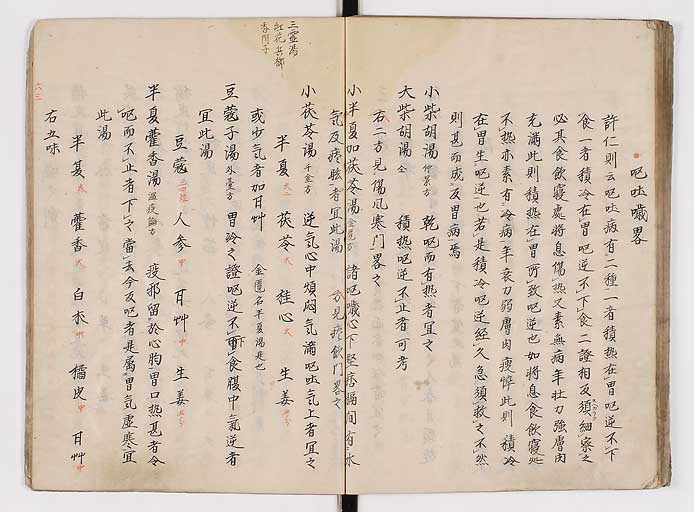 呕吐噦畧
許仁則云呕吐病有二種一者積熱在胃呕逆不下
食一者積冷在胃呕逆不下食二證相反須細察之
必其食飲寢處將息傷熱又素無病年壮力強膚肉
充満此則積熱在胃所致呕逆也如將息食飲寢処
不熱亦素有冷病年衰力弱膚肉瘦悴此則積冷
在胃生呕逆也若是積冷呕逆経久急須救之不然
則甚而成反胃病焉
小柴胡湯 仲景方 乾呕而有熱者宜之
大柴胡湯 仝 積熱呕逆不止者可考
右二方見傷風寒門畧之
小半夏加茯苓湯 金匱方 諸呕噦心下堅痞膈间有水
気及痰眩者宜此湯 方見痰飲門畧之
小茯苓湯 千金方 逆気心中煩悶気満呕吐気上者宜之
半夏 大二 茯苓 大 桂心 大 生姜
或少気者加甘艸 金匱名半夏湯是也
豆蔻子湯 外臺方 胃冷之證呕逆不下食腹中氣逆者
宜此湯
豆蔻 人参 中 甘艸 中 生姜
半夏藿香湯 温疫論方 疫邪留於心胸胃口熱甚者令
呕而不止者下之當去今反呕者是属胃気虚寒宜
此湯
半夏 大 藿香 大 白朮 中 橘皮 中 甘艸 中
右五味
三霊湯
六三